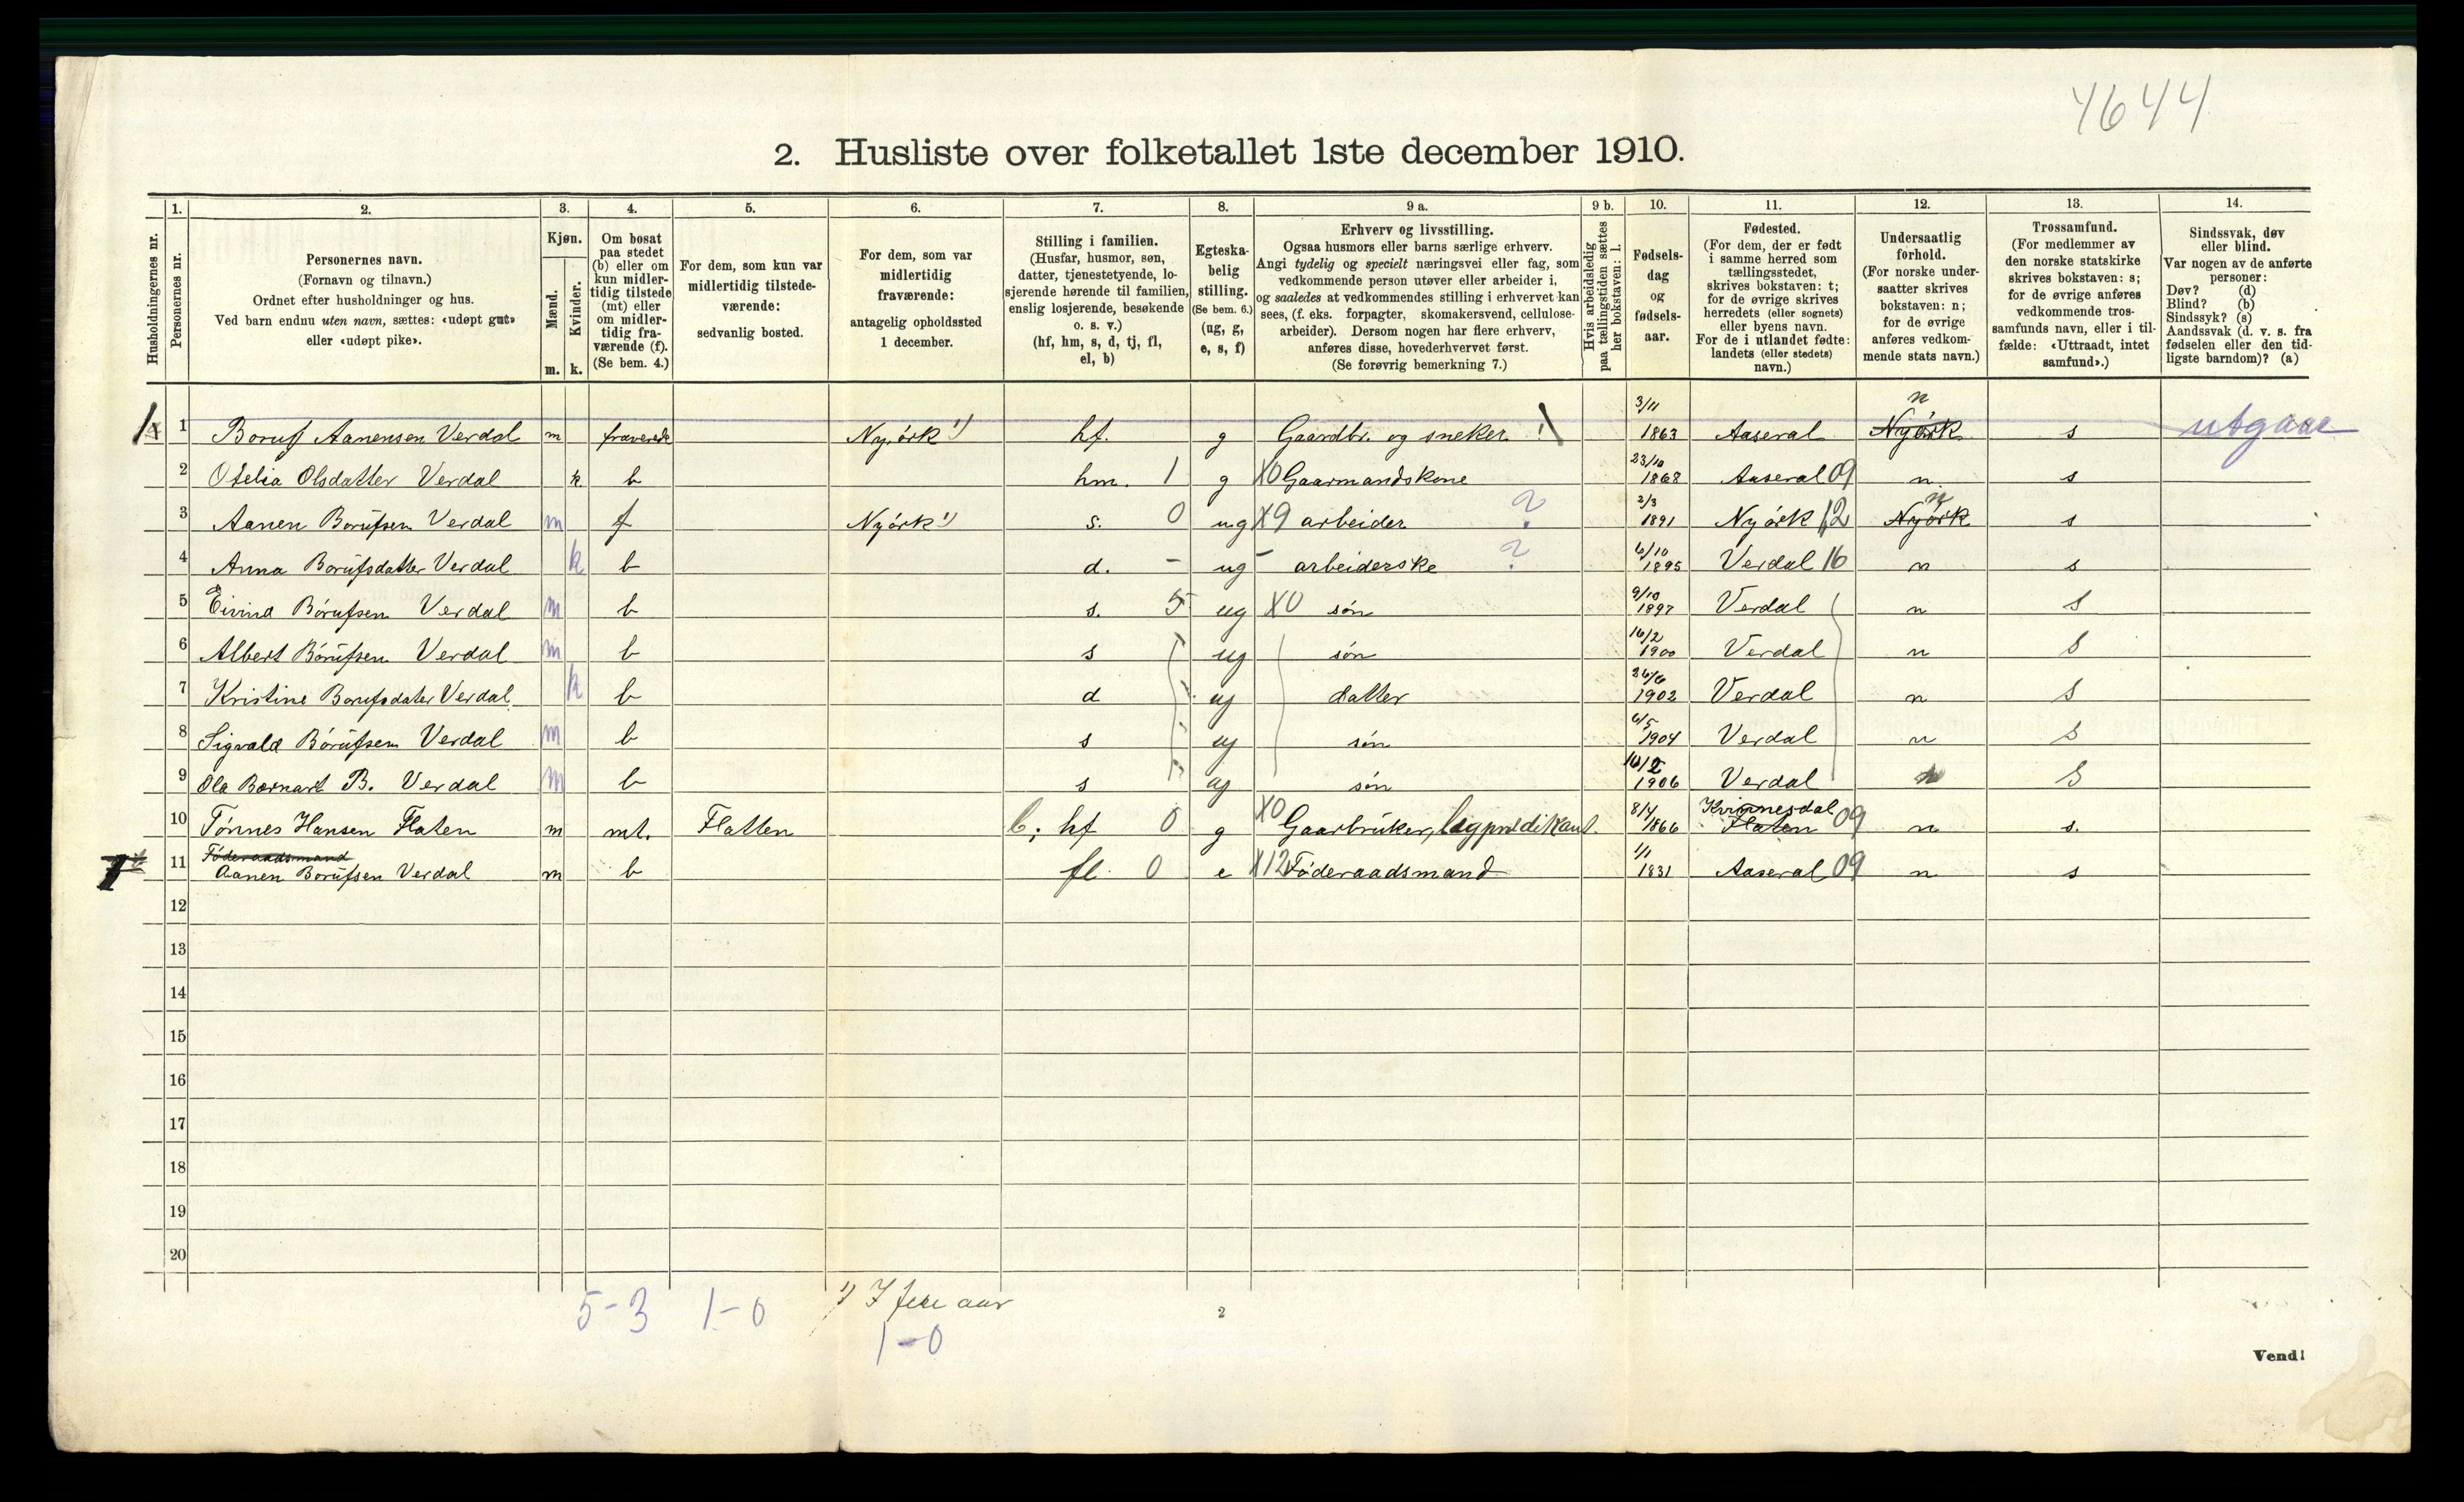 4644
2. Husliste over folketallet 1ste december 1910.
Husholdningernes nr.
1.
Personernes nr.
2.
Personernes navn.
(Fornavn og tilnavn.)
Ordnet efter husholdninger og hus.
Ved barn endnu uten navn, sættes: «udøpt gut»
eller «udøpt pike».
3.
Kjøn.
Mænd.
Kvinder.
m. k.
4.
Om bosat
paa stedet
(b) eller om
kun midler-
tidig tilstede
(mt) eller
om midler-
tidig fra-
værende (f).
(Se bem. 4.)
5.
For dem, som kun var
midlertidig tilstede-
værende:
sedvanlig bosted.
6.
For dem, som var
midlertidig
fraværende:
antagelig opholdssted
1 december.
7.
Stilling i familien.
(Husfar, husmor, søn,
datter, tjenestetyende, lo-
sjerende hørende til familien,
enslig losjerende, besøkende
o. s. v.)
(hf, hm, s, d, tj, fl,
el, b)
8.
Egteska-
belig
stilling.
(Se bem. 6.)
(ug, g,
e, s, f)
9 a.
Erhverv og livsstilling.
Ogsaa husmors eller barns særlige erhverv.
Angi tydelig og specielt næringsvei eller fag, som
vedkommende person utøver eller arbeider i,
og saaledes at vedkommendes stilling i erhvervet kan
sees, (f. eks. forpagter, skomakersvend, cellulose-
arbeider). Dersom nogen har flere erhverv,
anføres disse, hovederhvervet først.
(Se forøvrig bemerkning 7.)
9 b.
Hvis arbeidsledig
paa tællingstiden sættes
her bokstaven: l.
10.
Fødsels-
dag
og
fødsels-
aar.
11.
Fødested.
(For dem, der er født
i samme herred som
tællingsstedet,
skrives bokstaven: t;
for de øvrige skrives
herredets (eller sognets)
eller byens navn.
For de i utlandet fødte:
landets (eller stedets)
navn.)
12.
Undersaatlig
forhold.
(For norske under-
saatter skrives
bokstaven: n;
for de øvrige
anføres vedkom-
mende stats navn.)
13.
Trossamfund.
(For medlemmer av
den norske statskirke
skrives bokstaven: s;
for de øvrige anføres
vedkommende tros-
samfunds navn, eller i til-
fælde: «Uttraadt, intet
samfund».)
14.
Sindssvak, døv
eller blind.
Var nogen av de anførte
personer:
Døv? (d)
Blind? (b)
Sindssyk? (s)
Aandssvak (d. v. s. fra
fødselen eller den tid-
ligste barndom)? (a)
1 Boruf Aanensen Verdal m fraverede Nyørk 1) hf. g Gaardbr. og sneker 1) 3/11 1863 Aaseral Nyørk n s utgaar
2 Ofelia Olsdatter Verdal k b hm. 1 g X0 Gaarmandskone 23/10 1868 Aaseral 09 n. s
3 Aanen Borufsen Verdal m f Nyørk 1) s. 0 ug X9 arbeider ? 2/3 1891 Nyørk 12 Nyørk n s
4 Anna Borufsdatter Verdal k b d. - ug - arbeiderske ? 6/10 1895 Verdal 16 n s
5 Eivind Børufsen Verdal m b s. 5 ug X0 søn 9/10 1897 Verdal n s
6 Albert Børufsen Verdal m b s ug søn 16/2 1900 Verdal n s
7 Kristine Borufsdater Verdal k b d ug datter 26/6 1902 Verdal n s
8 Sigvald Børufsen Verdal m b s ug søn 6/5 1904 Verdal n s
9 Ola Bernart B. Verdal m b s ug søn 1906 Verdal n s
10 Tønnes Hansen Flaten m mt. Flatten b; hf 0 g X0 Gaarbruker, lægprædikant. 8/4 1866 Flaten Kvinnesdal 09 n s.
11 Føderaadsmand Aanen Borufsen Verdal m b fl. 0 e X12 Føderaadsmand 1/1 1831 Aaseral 09 n s
12
13
14
15
16
17
18
19
20
5-3 1-0 1) I flere aar
1-0
2
Vend!